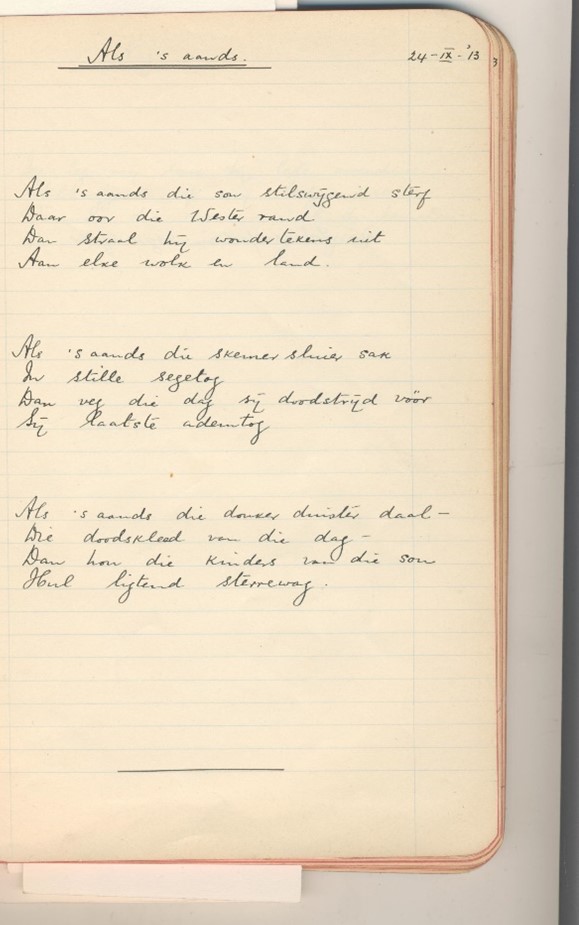 Als 's aands.
24-IX-'13
3
Als 's aands die son stilswÿgend sterf
Daar oor die Wester rand
Dan straal hÿ wondertekens uit
Aan elke wolk en land.
Als 's aands die skemer sluier sak
In stille segetog
Dan veg die dag sÿ doodstrÿd vóór
Sÿ laatste ademtog
Als 's aands die donker duister daal –
Die doodskleed van die dag –
Dan hou die kinders van die son
Hul ligtend sterrewag.